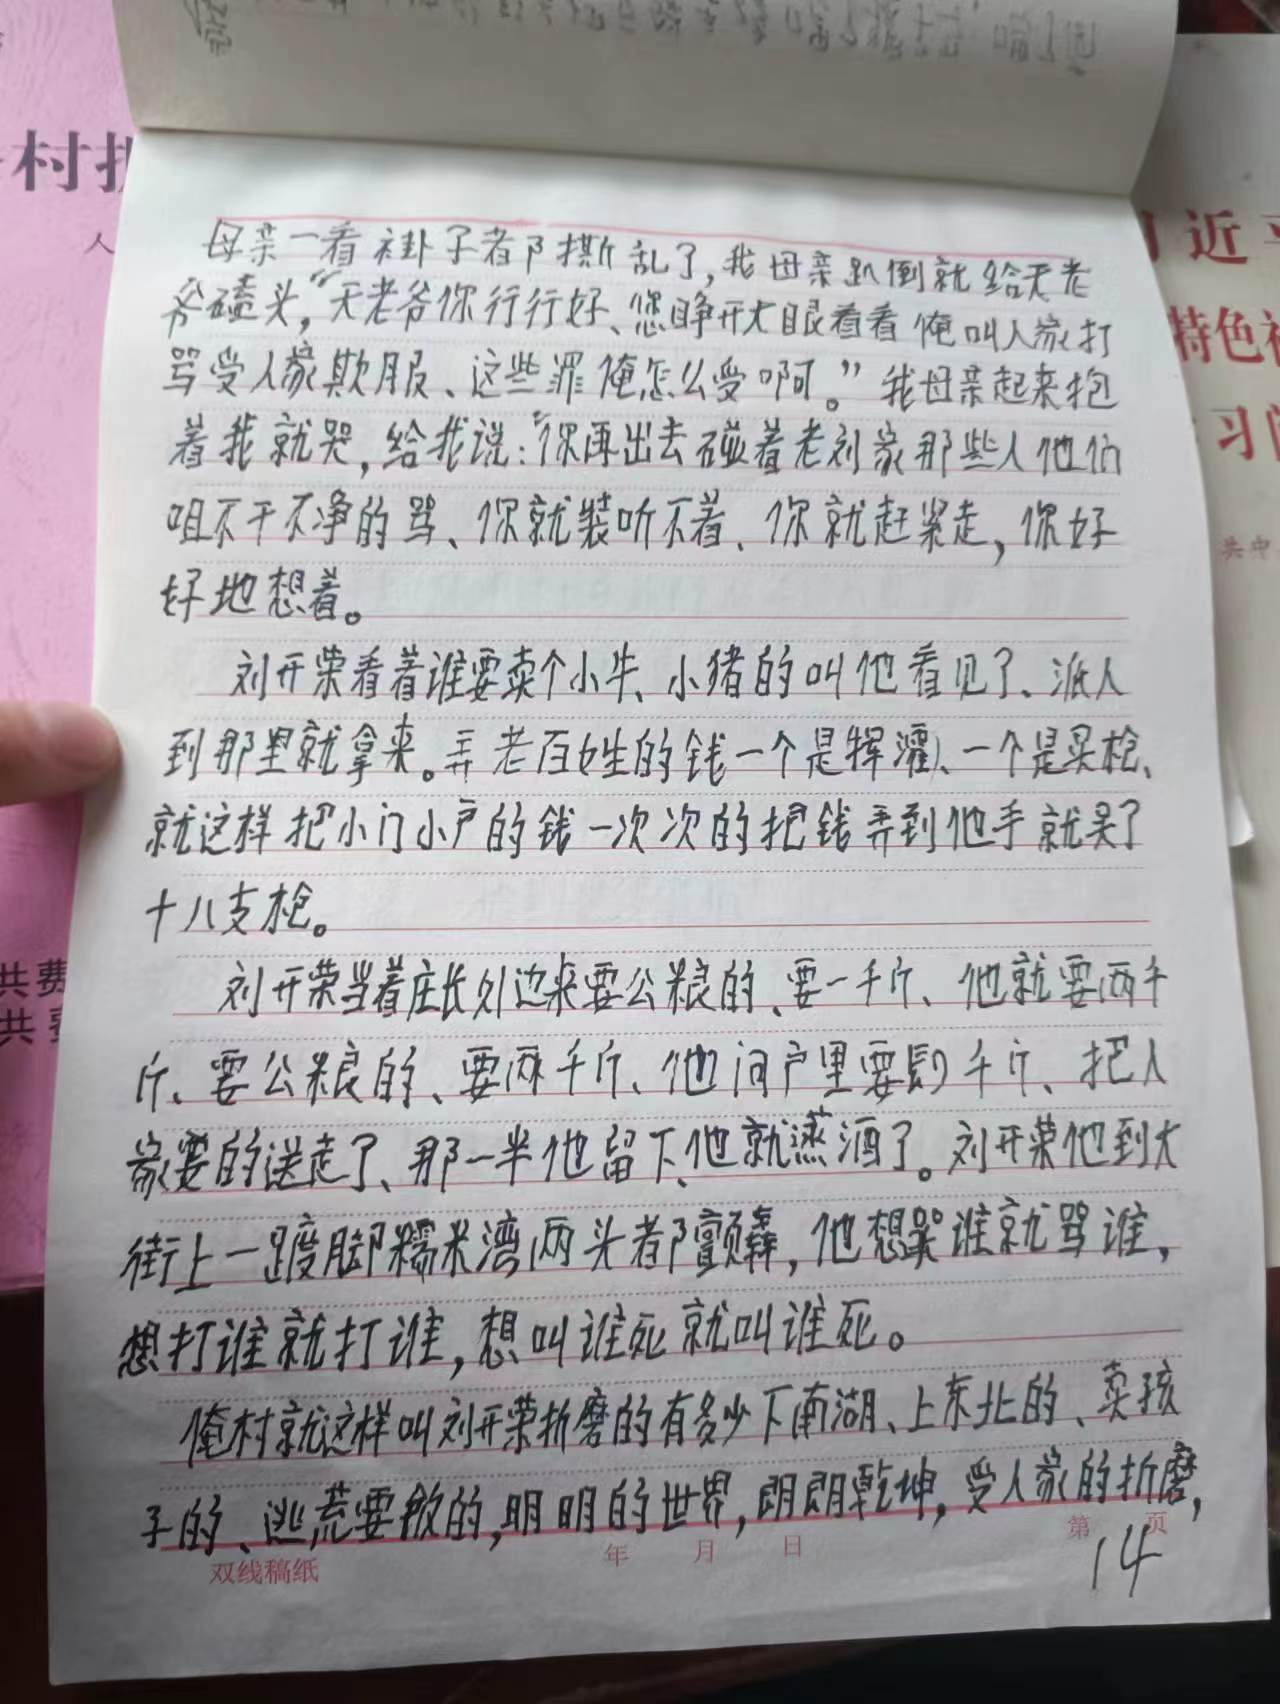 村
人
共费
共
近平
特色社
习
共中
母亲一看褂子都撕乱了,我母亲趴倒就给天老
爷磕头,“天老爷你行行好、您睁开大眼看看俺叫人家打
骂受人家欺服、这些罪俺怎么受啊。”我母亲起来抱
着我就哭,给我说:“你再出去碰着老刘家那些人他们
咀不干不净的骂、你就装听不着、你就赶紧走,你好
好地想着。
刘开荣看着谁要卖个小牛、小猪的叫他看见了、派人
到那里就拿来。弄老百姓的钱一个是挥濯、一个是买枪、
就这样把小门小户的钱一次次的把钱弄到他手就买了
十八支枪。
刘开荣当着庄长外边来要公粮的、要一千斤、他就要两千
斤、要公粮的、要两千斤、他问户里要四千斤、把人
家要的送走了、那一半他留下、他就蒸酒了。刘开荣他到大
街上一跺脚糯米湾两头都颤，他想骂谁就骂谁,
想打谁就打谁,想叫谁死就叫谁死。
俺村就这样叫刘开荣折磨的有多少下南湖、上东北的、卖孩
子的、逃荒要飯的,明明的世界,朗朗乾坤,受人家的折磨,
双线稿纸 年 月 日 第 页
14